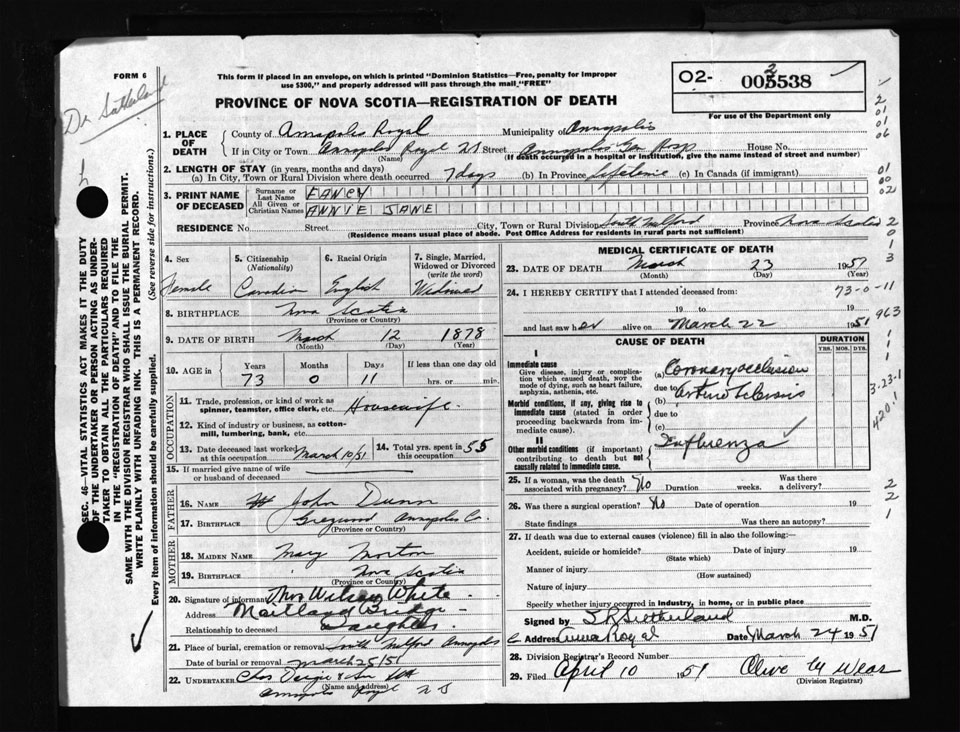 FORM 6
This form if placed in an envelope, on which is printed "Dominion Statistics—Free, penalty for improper
use $300," and properly addressed will pass through the mail "FREE"
O2- 002538
For use of the Department only
PROVINCE OF NOVA SCOTIA—REGISTRATION OF DEATH
1. PLACE OF DEATH
County of Annapolis Royal Municipality of Annapolis
If in City or Town Annapolis Royal Street Annapolis Gen Hosp House No.
(Name) (If death occurred in a hospital or institution, give the name instead of street and number)
2. LENGTH OF STAY (in years, months and days)
(a) In City, Town or Rural Division where death occurred 7 days (b) In Province Lifetime (c) In Canada (if immigrant)
3. PRINT NAME OF DECEASED
Surname or Last Name FANCY
All Given or Christian Names ANNIE JANE
RESIDENCE No. Street City, Town or Rural Division South Milford Province Nova Scotia
(Residence means usual place of abode. Post Office Address for residents in rural parts not sufficient)
4. Sex Female
5. Citizenship (Nationality) Canadian
6. Racial Origin English
7. Single, Married, Widowed or Divorced (write the word) Widowed
8. BIRTHPLACE Nova Scotia
(Province or Country)
9. DATE OF BIRTH March 12 1878
(Month) (Day) (Year)
10. AGE in Years 73 Months 0 Days 11 If less than one day old hrs. or min.
OCCUPATION
11. Trade, profession, or kind of work as spinner, teamster, office clerk, etc. Housewife
12. Kind of industry or business, as cotton-mill, lumbering, bank, etc.
13. Date deceased last worked at this occupation March 10/51
14. Total yrs. spent in this occupation 55
15. If married give name of wife or husband of deceased
FATHER
16. NAME John Dunn
17. BIRTHPLACE Annapolis Co.
(Province or Country)
MOTHER
18. MAIDEN NAME Mary Morton
19. BIRTHPLACE Nova Scotia
(Province or Country)
20. Signature of informant Mrs Wilsey White
Address Maitland Bridge
Relationship to deceased Daughter
21. Place of burial, cremation or removal South Milford Annapolis
Date of burial or removal March 25/51
22. UNDERTAKER Chas Dargie & Son
(Name and address)
Annapolis Royal N S
MEDICAL CERTIFICATE OF DEATH
23. DATE OF DEATH March 23 1951
(Month) (Day) (Year)
24. I HEREBY CERTIFY that I attended deceased from:
73-0-11
19 to 19
and last saw her alive on March 22 1951
CAUSE OF DEATH
DURATION
YRS. MOS. DYS.
I
Immediate cause
Give disease, injury or complication which caused death, not the mode of dying, such as heart failure, asphyxia, asthenia, etc.
(a) Coronary occlusion
due to
Morbid conditions, if any, giving rise to immediate cause (stated in order proceeding backwards from immediate cause).
(b)
due to
(c)
II
Other morbid conditions (if important) contributing to death but not causally related to immediate cause.
Influenza
25. If a woman, was the death associated with pregnancy? No Duration weeks. Was there a delivery?
26. Was there a surgical operation? No Date of operation 19
State findings Was there an autopsy?
27. If death was due to external causes (violence) fill in also the following:—
Accident, suicide or homicide? Date of injury 19
(State which)
Manner of injury
(How sustained)
Nature of injury
Specify whether injury occurred in industry, in home, or in public place
Signed by Sutherland M.D.
Address Anna Royal Date March 24 1951
28. Division Registrar's Record Number
29. Filed April 10 1951 Olive M Wear
(Division Registrar)
Dr Sutherland
SEC. 46—VITAL STATISTICS ACT MAKES IT THE DUTY
OF THE UNDERTAKER OR PERSON ACTING AS UNDERTAKER
TO OBTAIN ALL THE PARTICULARS REQUIRED
IN THE "REGISTRATION OF DEATH" AND TO FILE THE
SAME WITH THE DIVISION REGISTRAR WHO SHALL ISSUE THE BURIAL PERMIT.
WRITE PLAINLY WITH UNFADING INK. THIS IS A PERMANENT RECORD.
Every item of information should be carefully supplied. (See reverse side for instructions.)
963
3-23-1
420.1